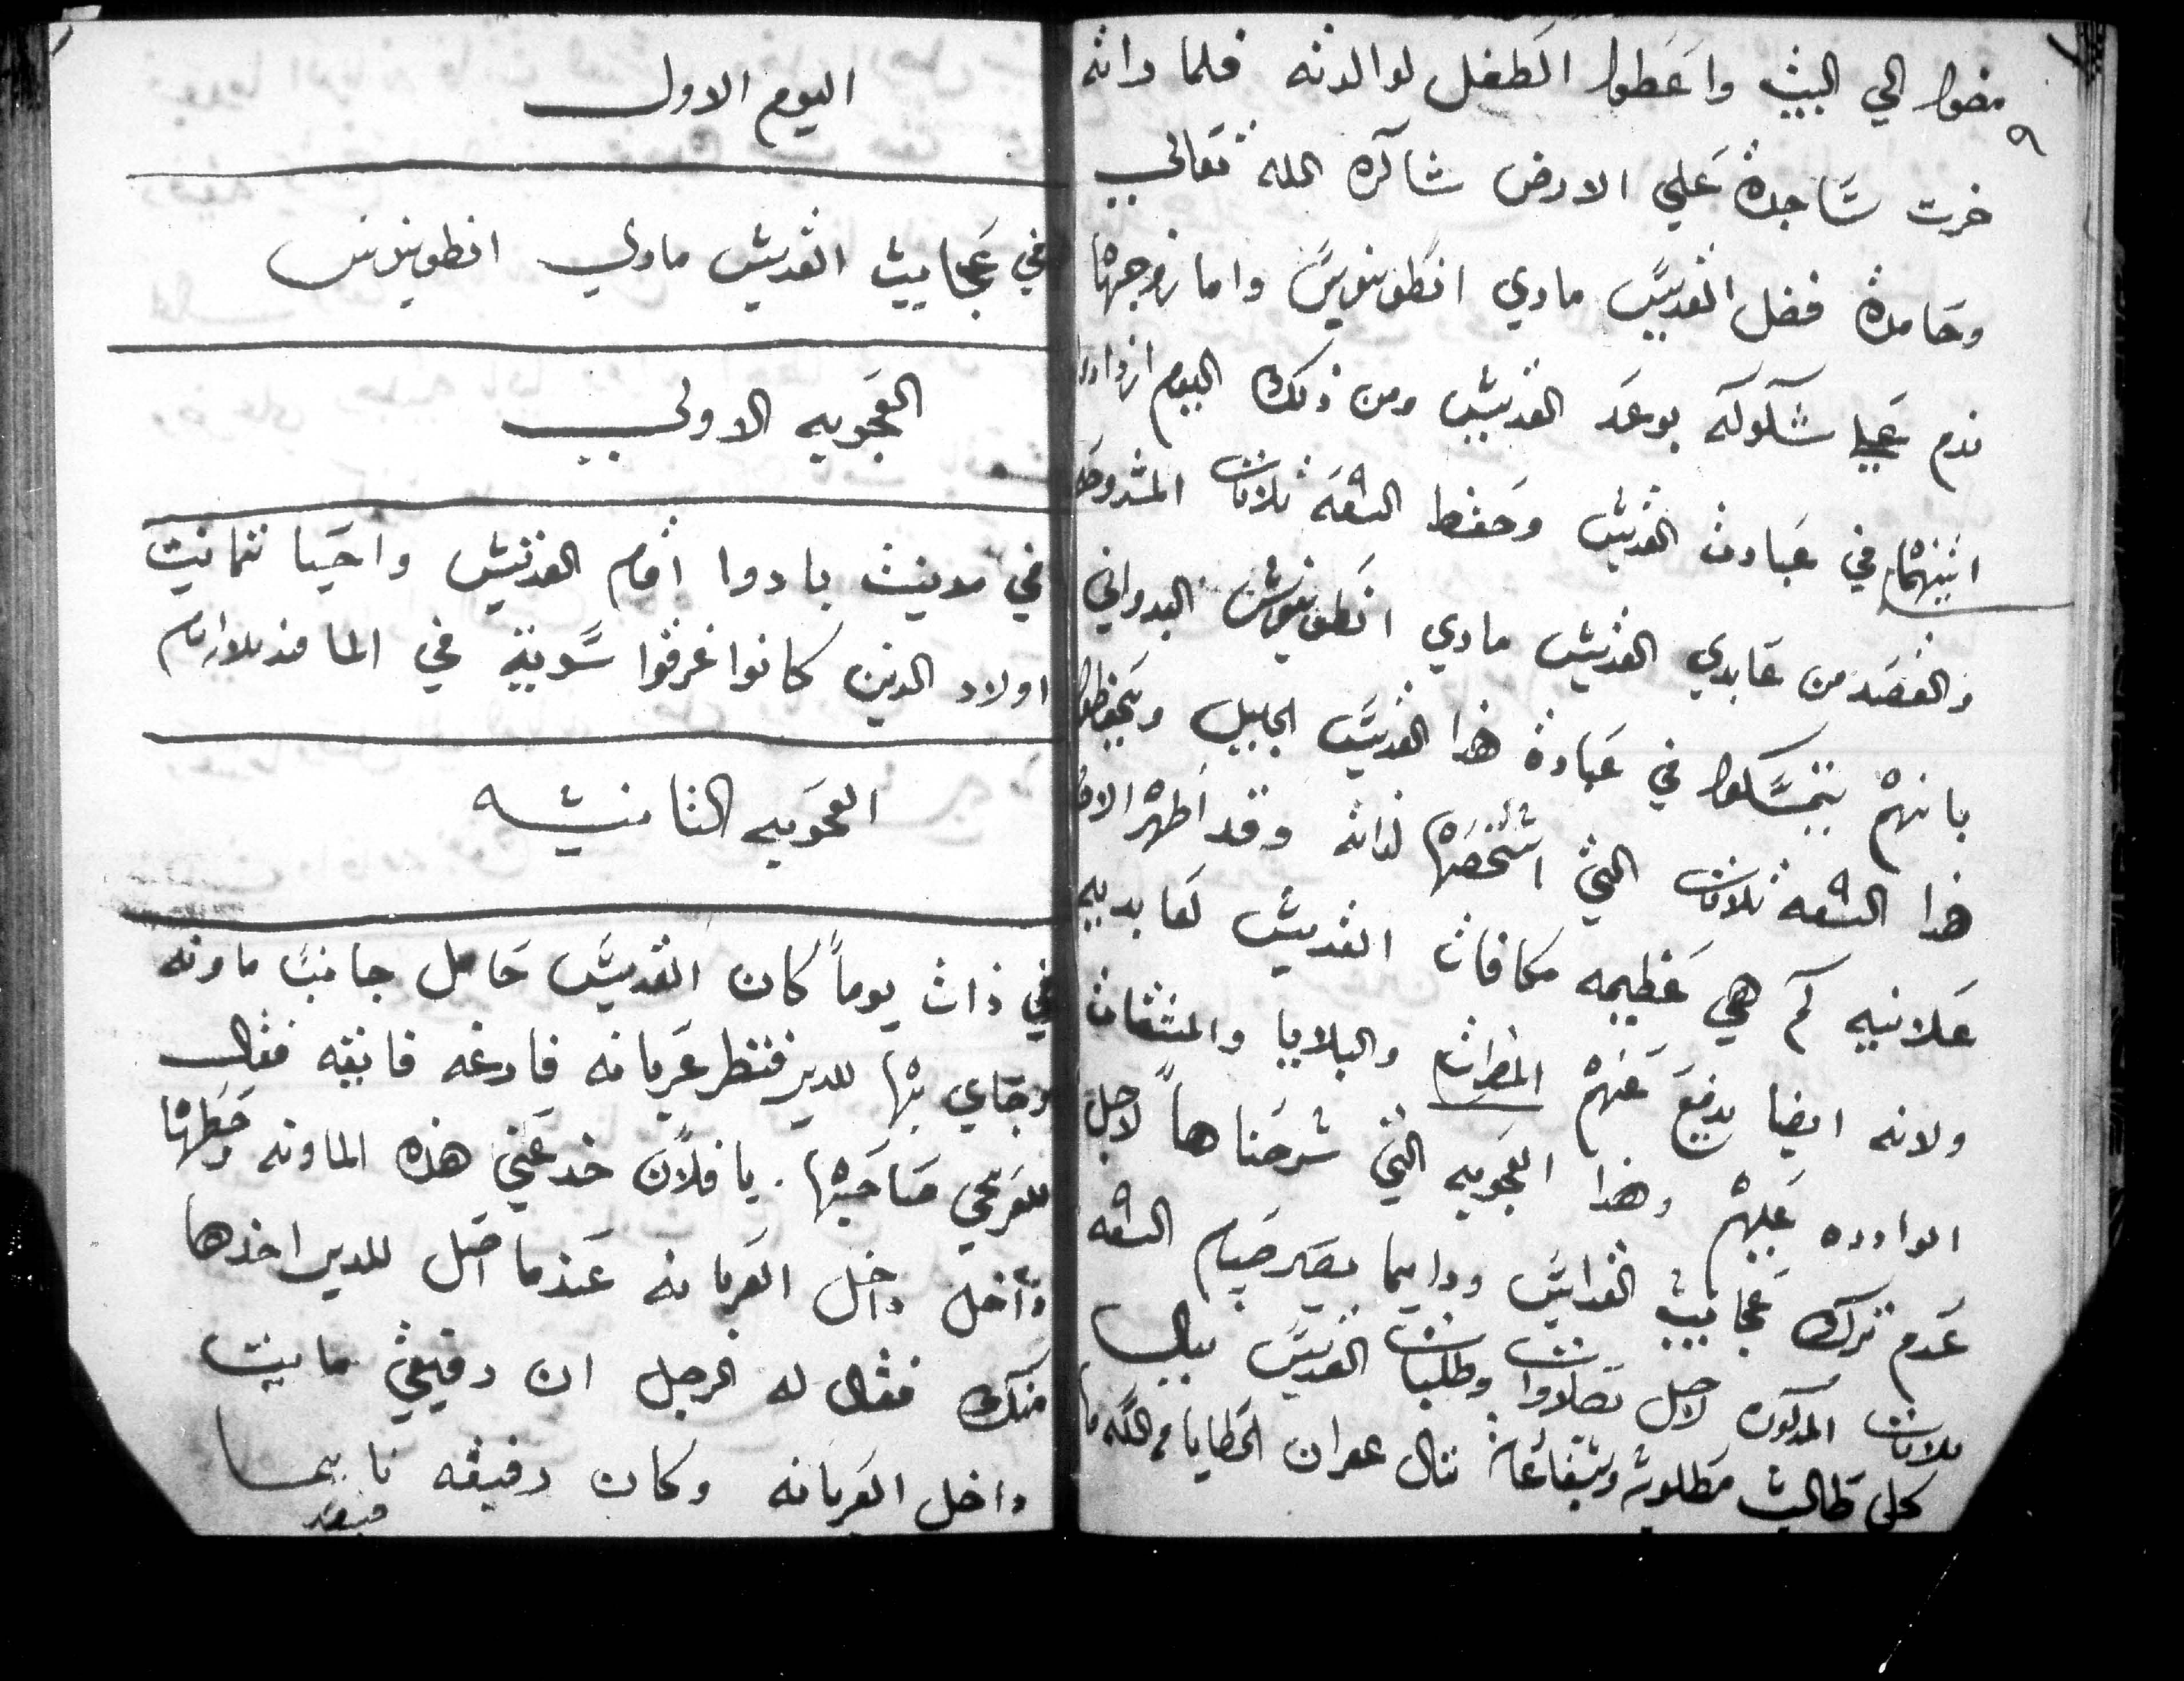 مضوا الي البيت واعطوا الطفل لوالدته فلما راته
خرت ساجدة علي الارض شاكره الله تعالي
وحامدة فضل القديس ماري انطونيوس واما زوجها
ندم علي شكوكه بوعد القديس ومن ذلك اليوم ازدادوا
اثنينهما في عبادت القديس وحفظ التسعه ثلاثات المشروحه
والقصد من عابدي القديس ماري انطونيوس البدواني
بانهم يتمسكوا في عبادة هذا القديس الجليل ويحفظوا
هذا التسعه ثلاثات التي اشخصها لذاته وقد اظهر الان
علانيه كم هي عظيمه مكافات القديس لعابديه
ولانه ايضا يدفع عنهم المضرات والبلايا والمشقات
الوارده عليهم وهذا العجوبه التي شرحناها لاجل
عدم ترك عجايب القديس ودايما يصير صيام التسعه
ثلاثات المذكوره لاجل بصلاوات وطلبات القديس ينال
كل طالب مطلوبه وبشفاعته ننال غفران الخطايا من الله
اليوم الاول
في عجاييب القديس ماري انطونيوس
العجوبه الاولي
في مدينت بادوا اقام القديس واحيا ثمانيت
اولاد الذين كانوا غرقوا سوية في الما
العجوبه الثانيه
في ذات يوماً كان القديس حامل جانب ماونه
وجاي بها للدير فنظر عربانه فارغه فايته فقال
للعربجي صاحبها. يا فلان خد عني هذه الماونه وحطها
داخل العربانه عندما اصل للدير اخذها
منك فقال له الرجل ان رفيقي مايت
داخل العربانه وكان رفيقه نايما